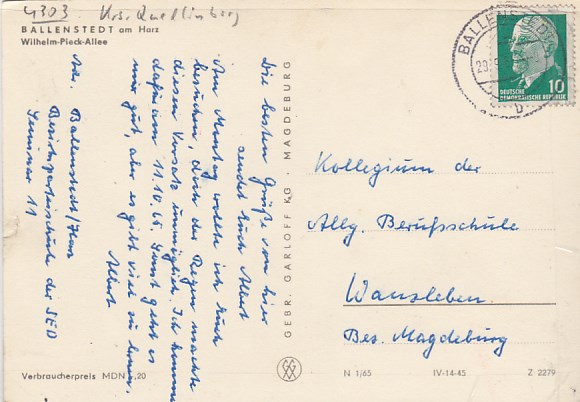 4303 Krs. Quedlinburg
BALLENSTEDT am Harz
Wilhelm-Pieck-Allee
Die besten Grüße von hier
sendet Euch Albert
Am Montag wollte ich Euch
besuchen, doch der Regen machte
diesen Vorsatz unmöglich. Ich komme
dafür am 11.10.65. Sonst geht es
mir gut, aber es gibt viel zu lernen.
Albert
Adr. Ballenstedt/Harz
Bezirksparteischule der SED
Seminar 11
GEBR. GARLOFF KG · MAGDEBURG
BALLENSTEDT
b
DEUTSCHE
DEMOKRATISCHE REPUBLIK
10
Kollegium der
Allg. Berufsschule
Wansleben
Bez. Magdeburg
Verbraucherpreis MDN 0,20
N 1/65 IV-14-45 Z 2279